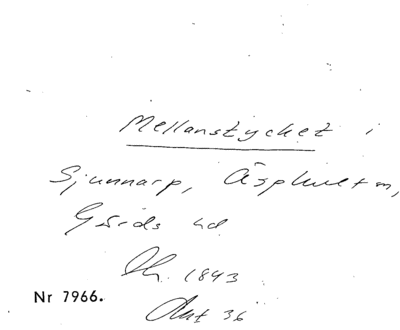 Mellanstycket i
Sjunnarp, Äsphult sn,
Gärds hd
Th. 1843
Nr 7966.
Akt 36